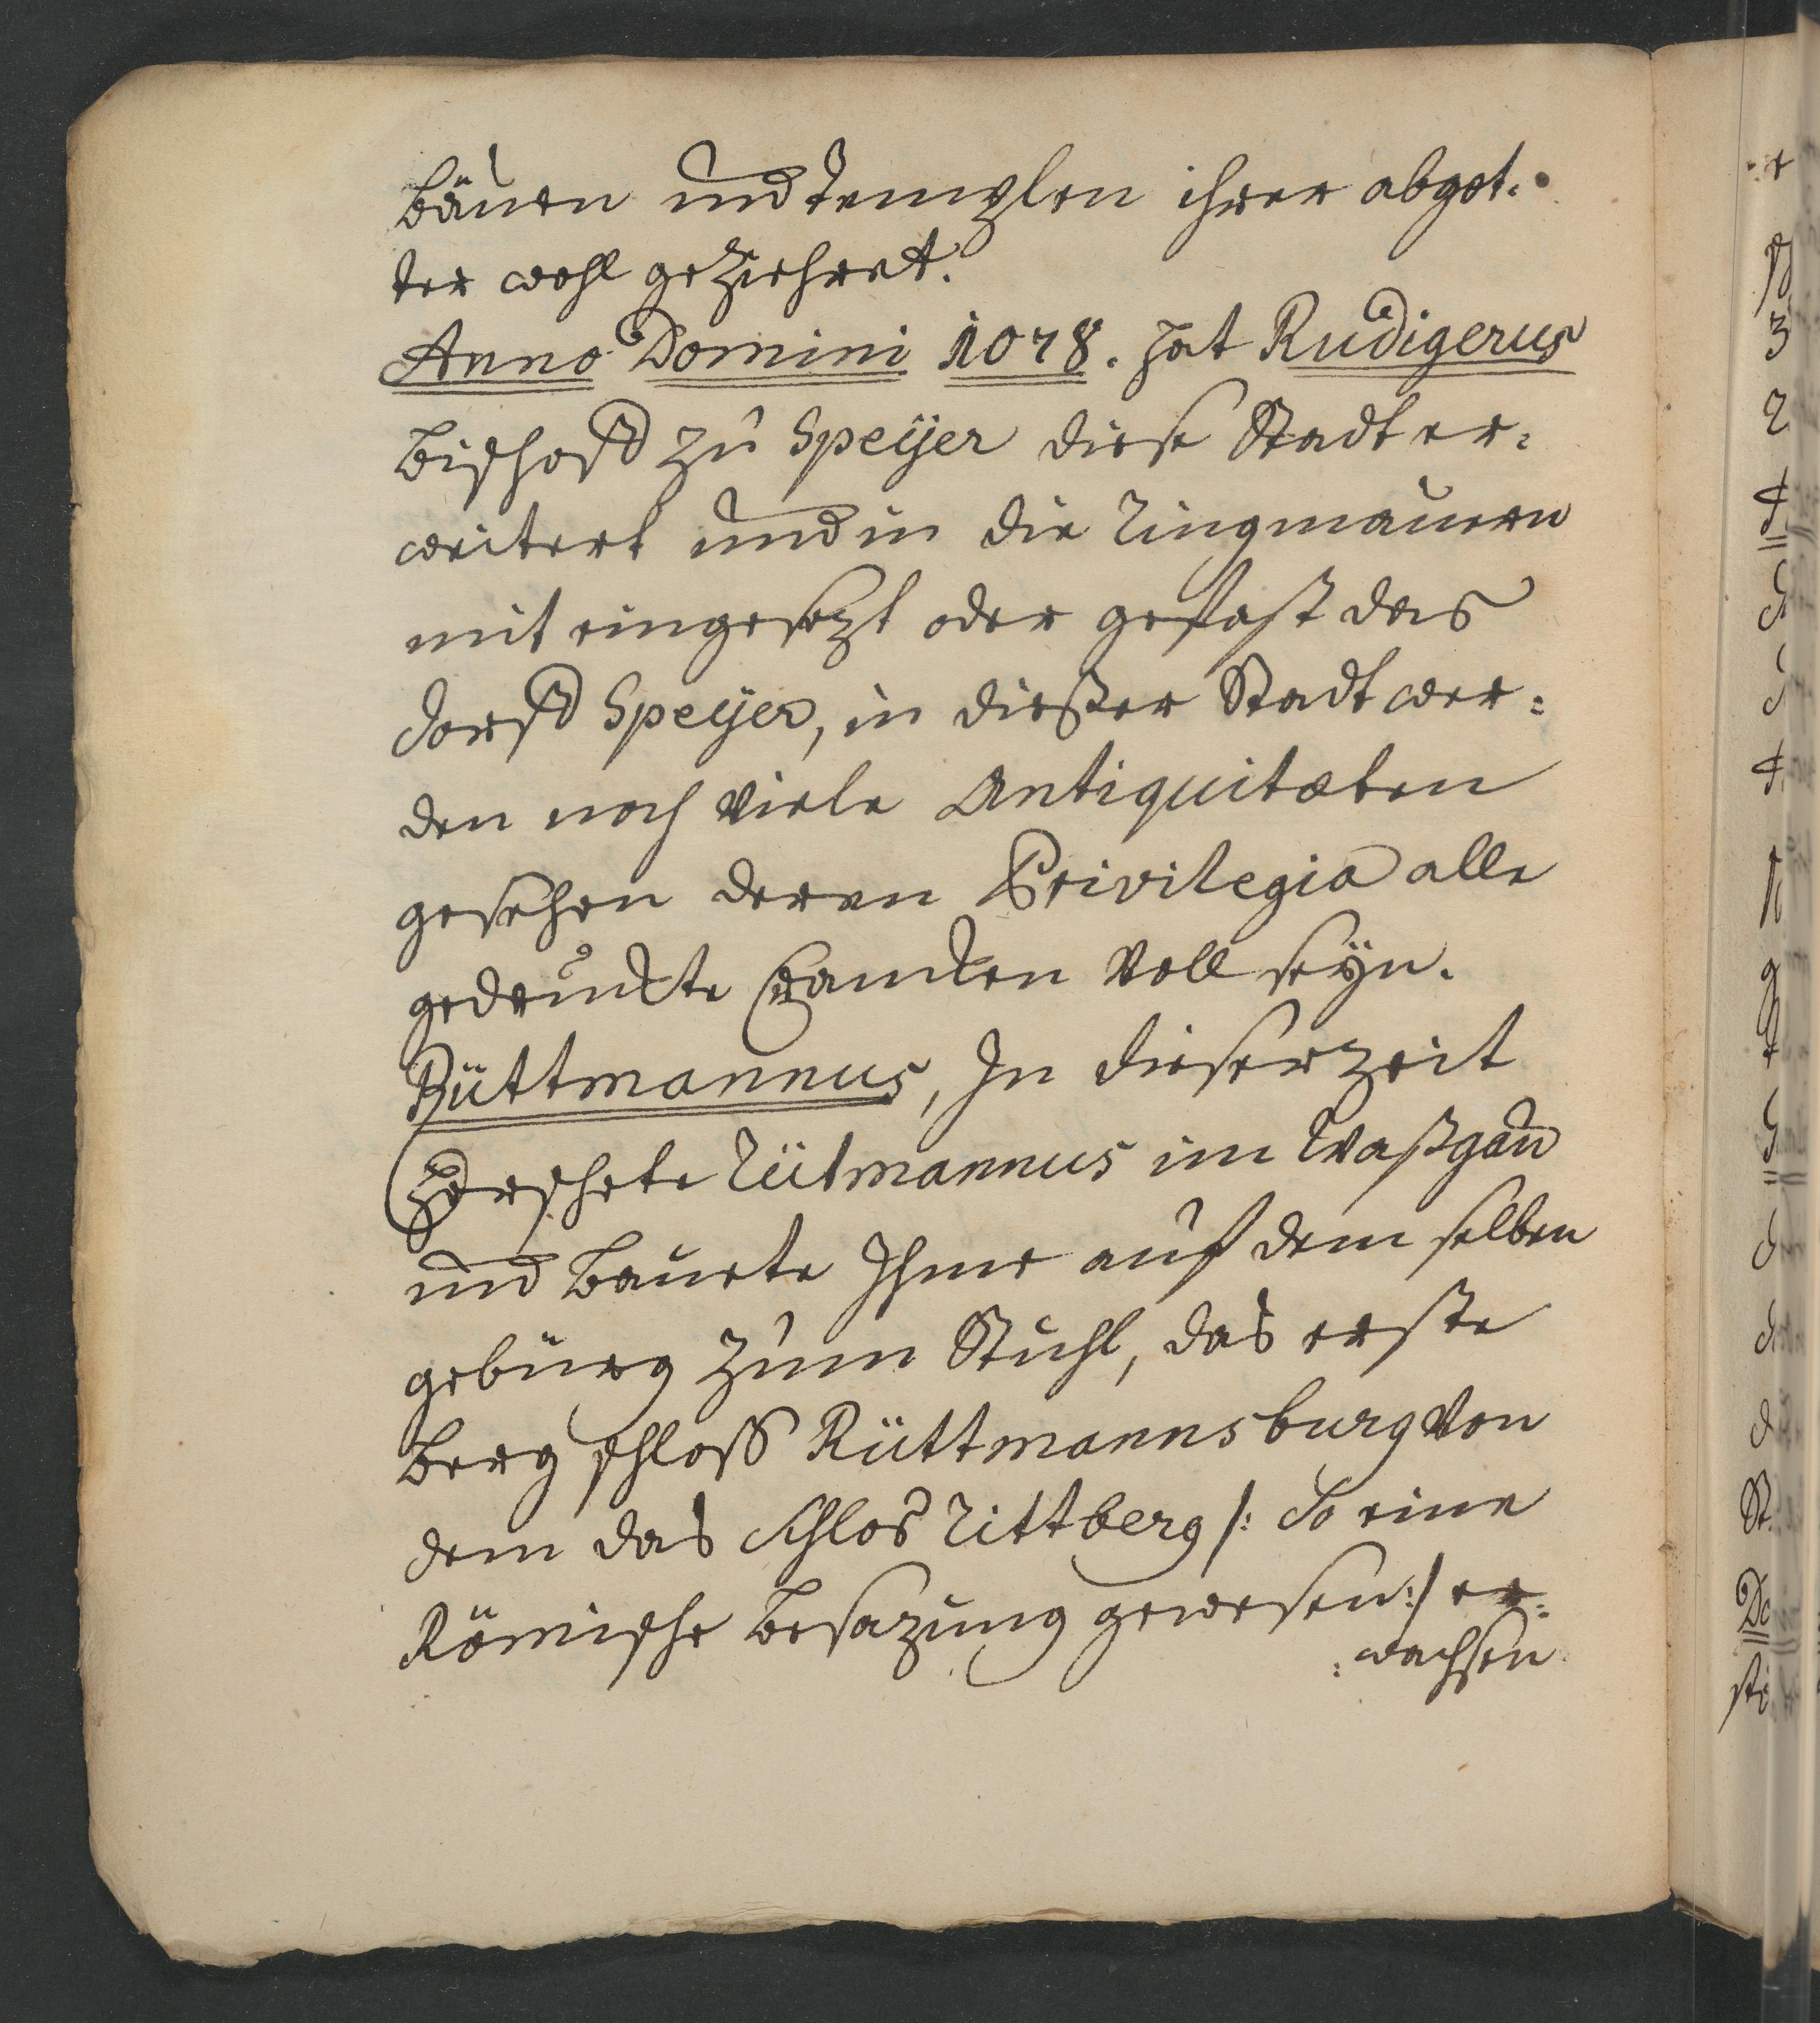 bäuen und Templen ihrer abgöt=
ter wohl geziehret.
Anno Domini 1078. hat Rudigerus
Bischoff zu Speÿer diese Stadt er=
weitert und in die Ringmauren
mit eingesezt oder gefast das
dorff Speÿer, in dießer Stadt wer=
den noch viele Antiquitæten
gesehen deren Privilegia alle
gedruckte Cantzen voll seÿn.
Rüttmannus, In dieser zeit
Herschete Rütmannus im Waßgau
und bauete Ihme auf dem selben
gebürg zum Stuhl, das erste
berg schloss Rüttmannsburg von
dem das schlos Rittberg /: So eine
Römische besazung gewesen :/ er=
=wachsen